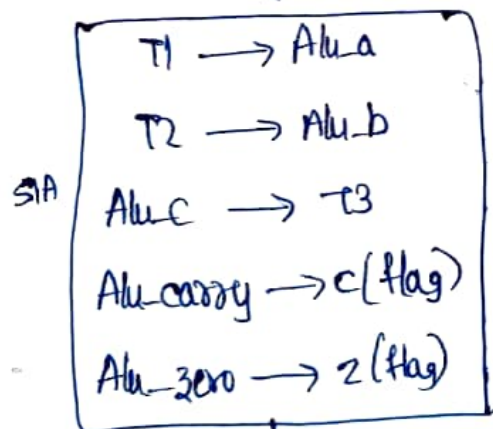 T1 → Alu_a
T2 → Alu_b
S1A
Alu_c → T3
Alu_carry → c(flag)
Alu_zero → z(flag)